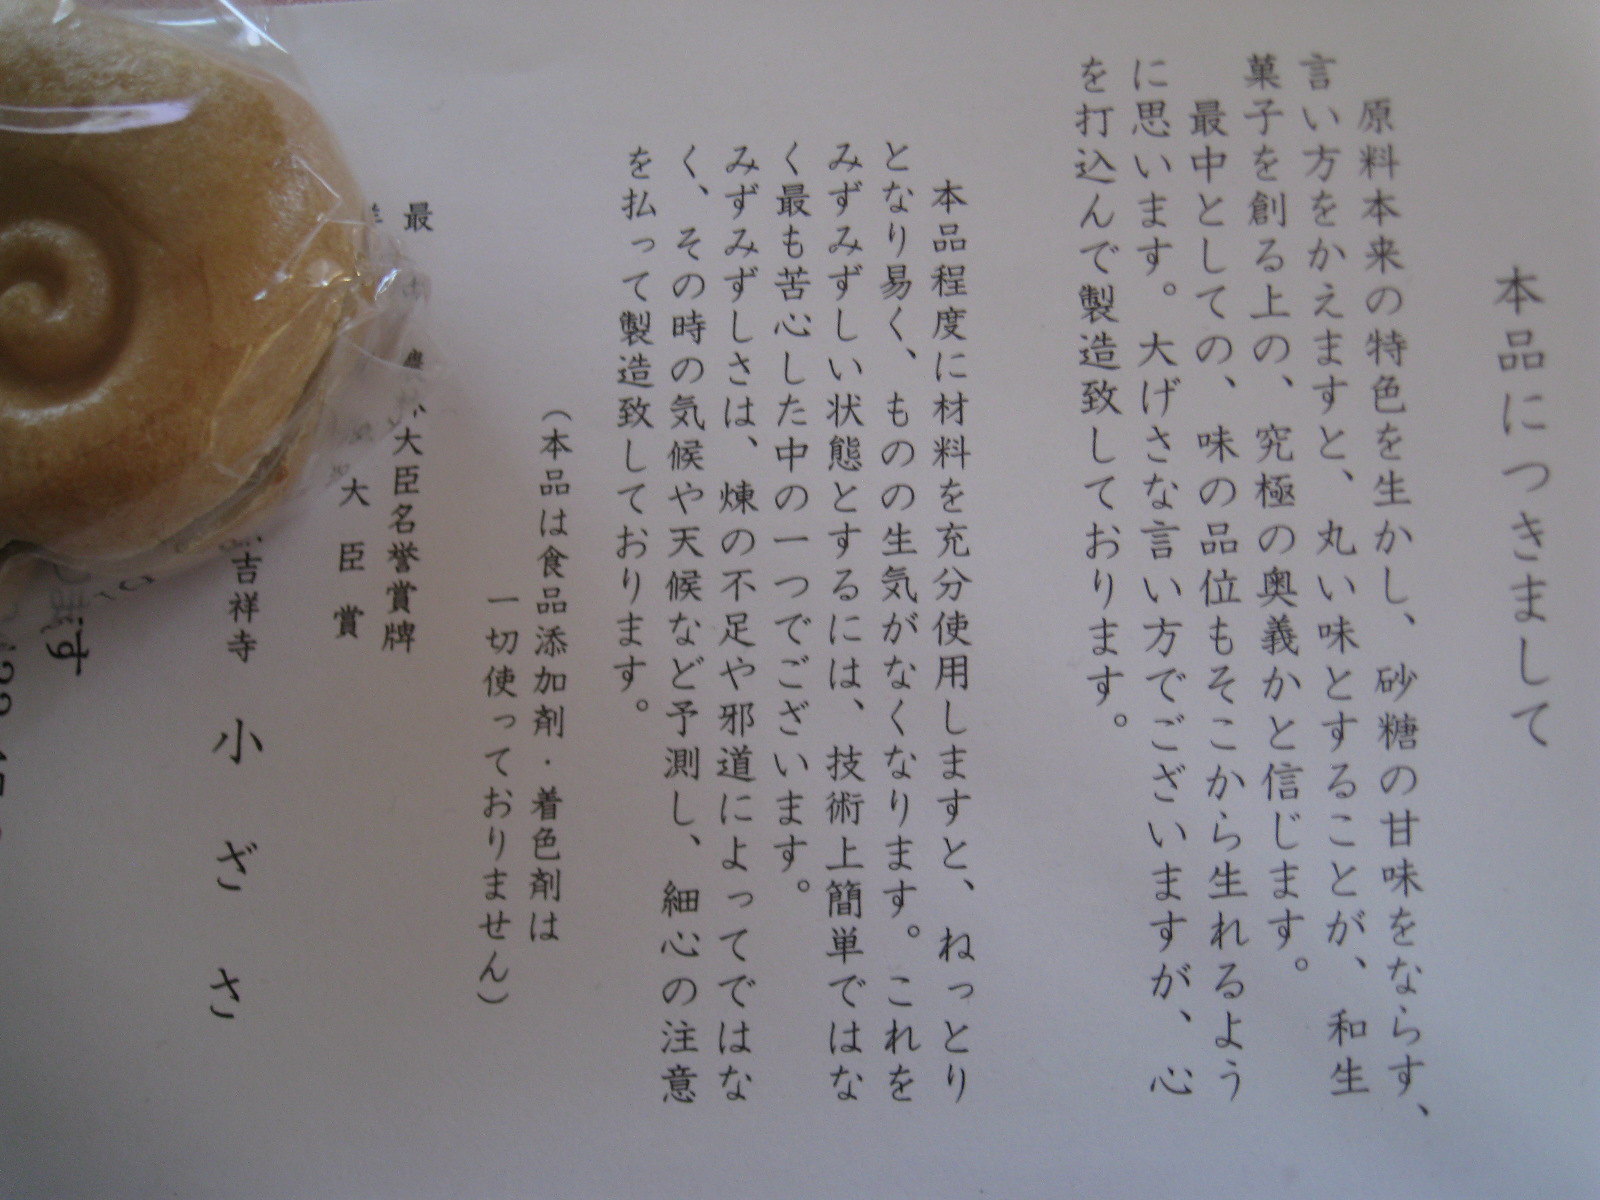 本品につきまして
原料本来の特色を生かし、砂糖の甘味をならす、
言い方をかえますと、丸い味とすることが、和生
菓子を創る上の、究極の奥義かと信じます。
最中としての、味の品位もそこから生れるよう
に思います。大げさな言い方でございますが、心
を打込んで製造致しております。
本品程度に材料を充分使用しますと、ねっとり
となり易く、ものの生気がなくなります。これを
みずみずしい状態とするには、技術上簡単ではな
く最も苦心した中の一つでございます。
みずみずしさは、煉の不足や邪道によってではな
く、その時の気候や天候など予測し、細心の注意
を払って製造致しております。
(本品は食品添加剤・着色剤は
一切使っておりません)
最
大臣名誉賞牌
大臣賞
吉祥寺 小ざさ
す